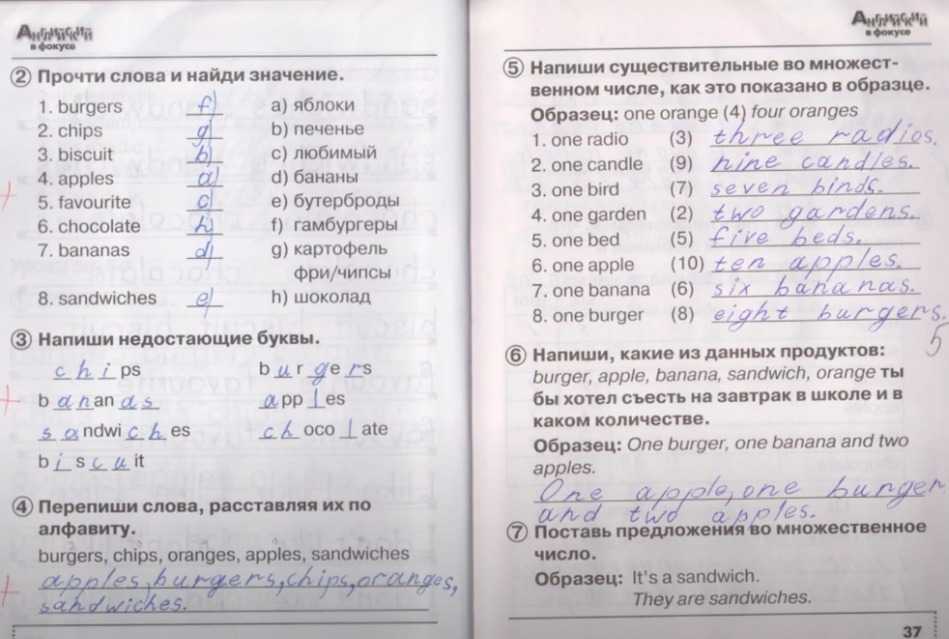 Английский
в фокусе
② Прочти слова и найди значение.
1. burgers f) a) яблоки
2. chips g) b) печенье
3. biscuit b) c) любимый
4. apples a) d) бананы
5. favourite c) e) бутерброды
6. chocolate h) f) гамбургеры
7. bananas d) g) картофель
фри/чипсы
8. sandwiches e) h) шоколад
③ Напиши недостающие буквы.
chips burgers
bananas apples
sandwiches chocolate
biscuit
④ Перепиши слова, расставляя их по
алфавиту.
burgers, chips, oranges, apples, sandwiches
apples, burgers, chips, oranges,
sandwiches.
Английский
в фокусе
⑤ Напиши существительные во множест-
венном числе, как это показано в образце.
Образец: one orange (4) four oranges
1. one radio (3) three radios.
2. one candle (9) nine candles.
3. one bird (7) seven binds.
4. one garden (2) two gardens.
5. one bed (5) five beds.
6. one apple (10) ten apples.
7. one banana (6) six bananas.
8. one burger (8) eight burgers.
5
⑥ Напиши, какие из данных продуктов:
burger, apple, banana, sandwich, orange ты
бы хотел съесть на завтрак в школе и в
каком количестве.
Образец: One burger, one banana and two
apples.
One apple, one burger
and two apples.
⑦ Поставь предложения во множественное
число.
Образец: It's a sandwich.
They are sandwiches.
37